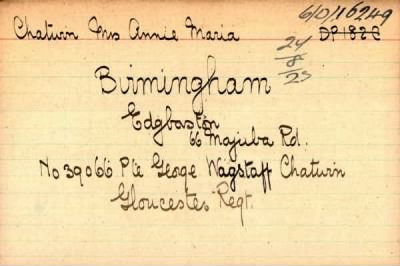 Chatwin Mrs Annie Maria
6/D/16249
DP 182 C
24/8/23
Birmingham
Edgbaston
66 Majuba Rd.
No 39066 Pte George Wagstaff Chatwin
Gloucester Regt.